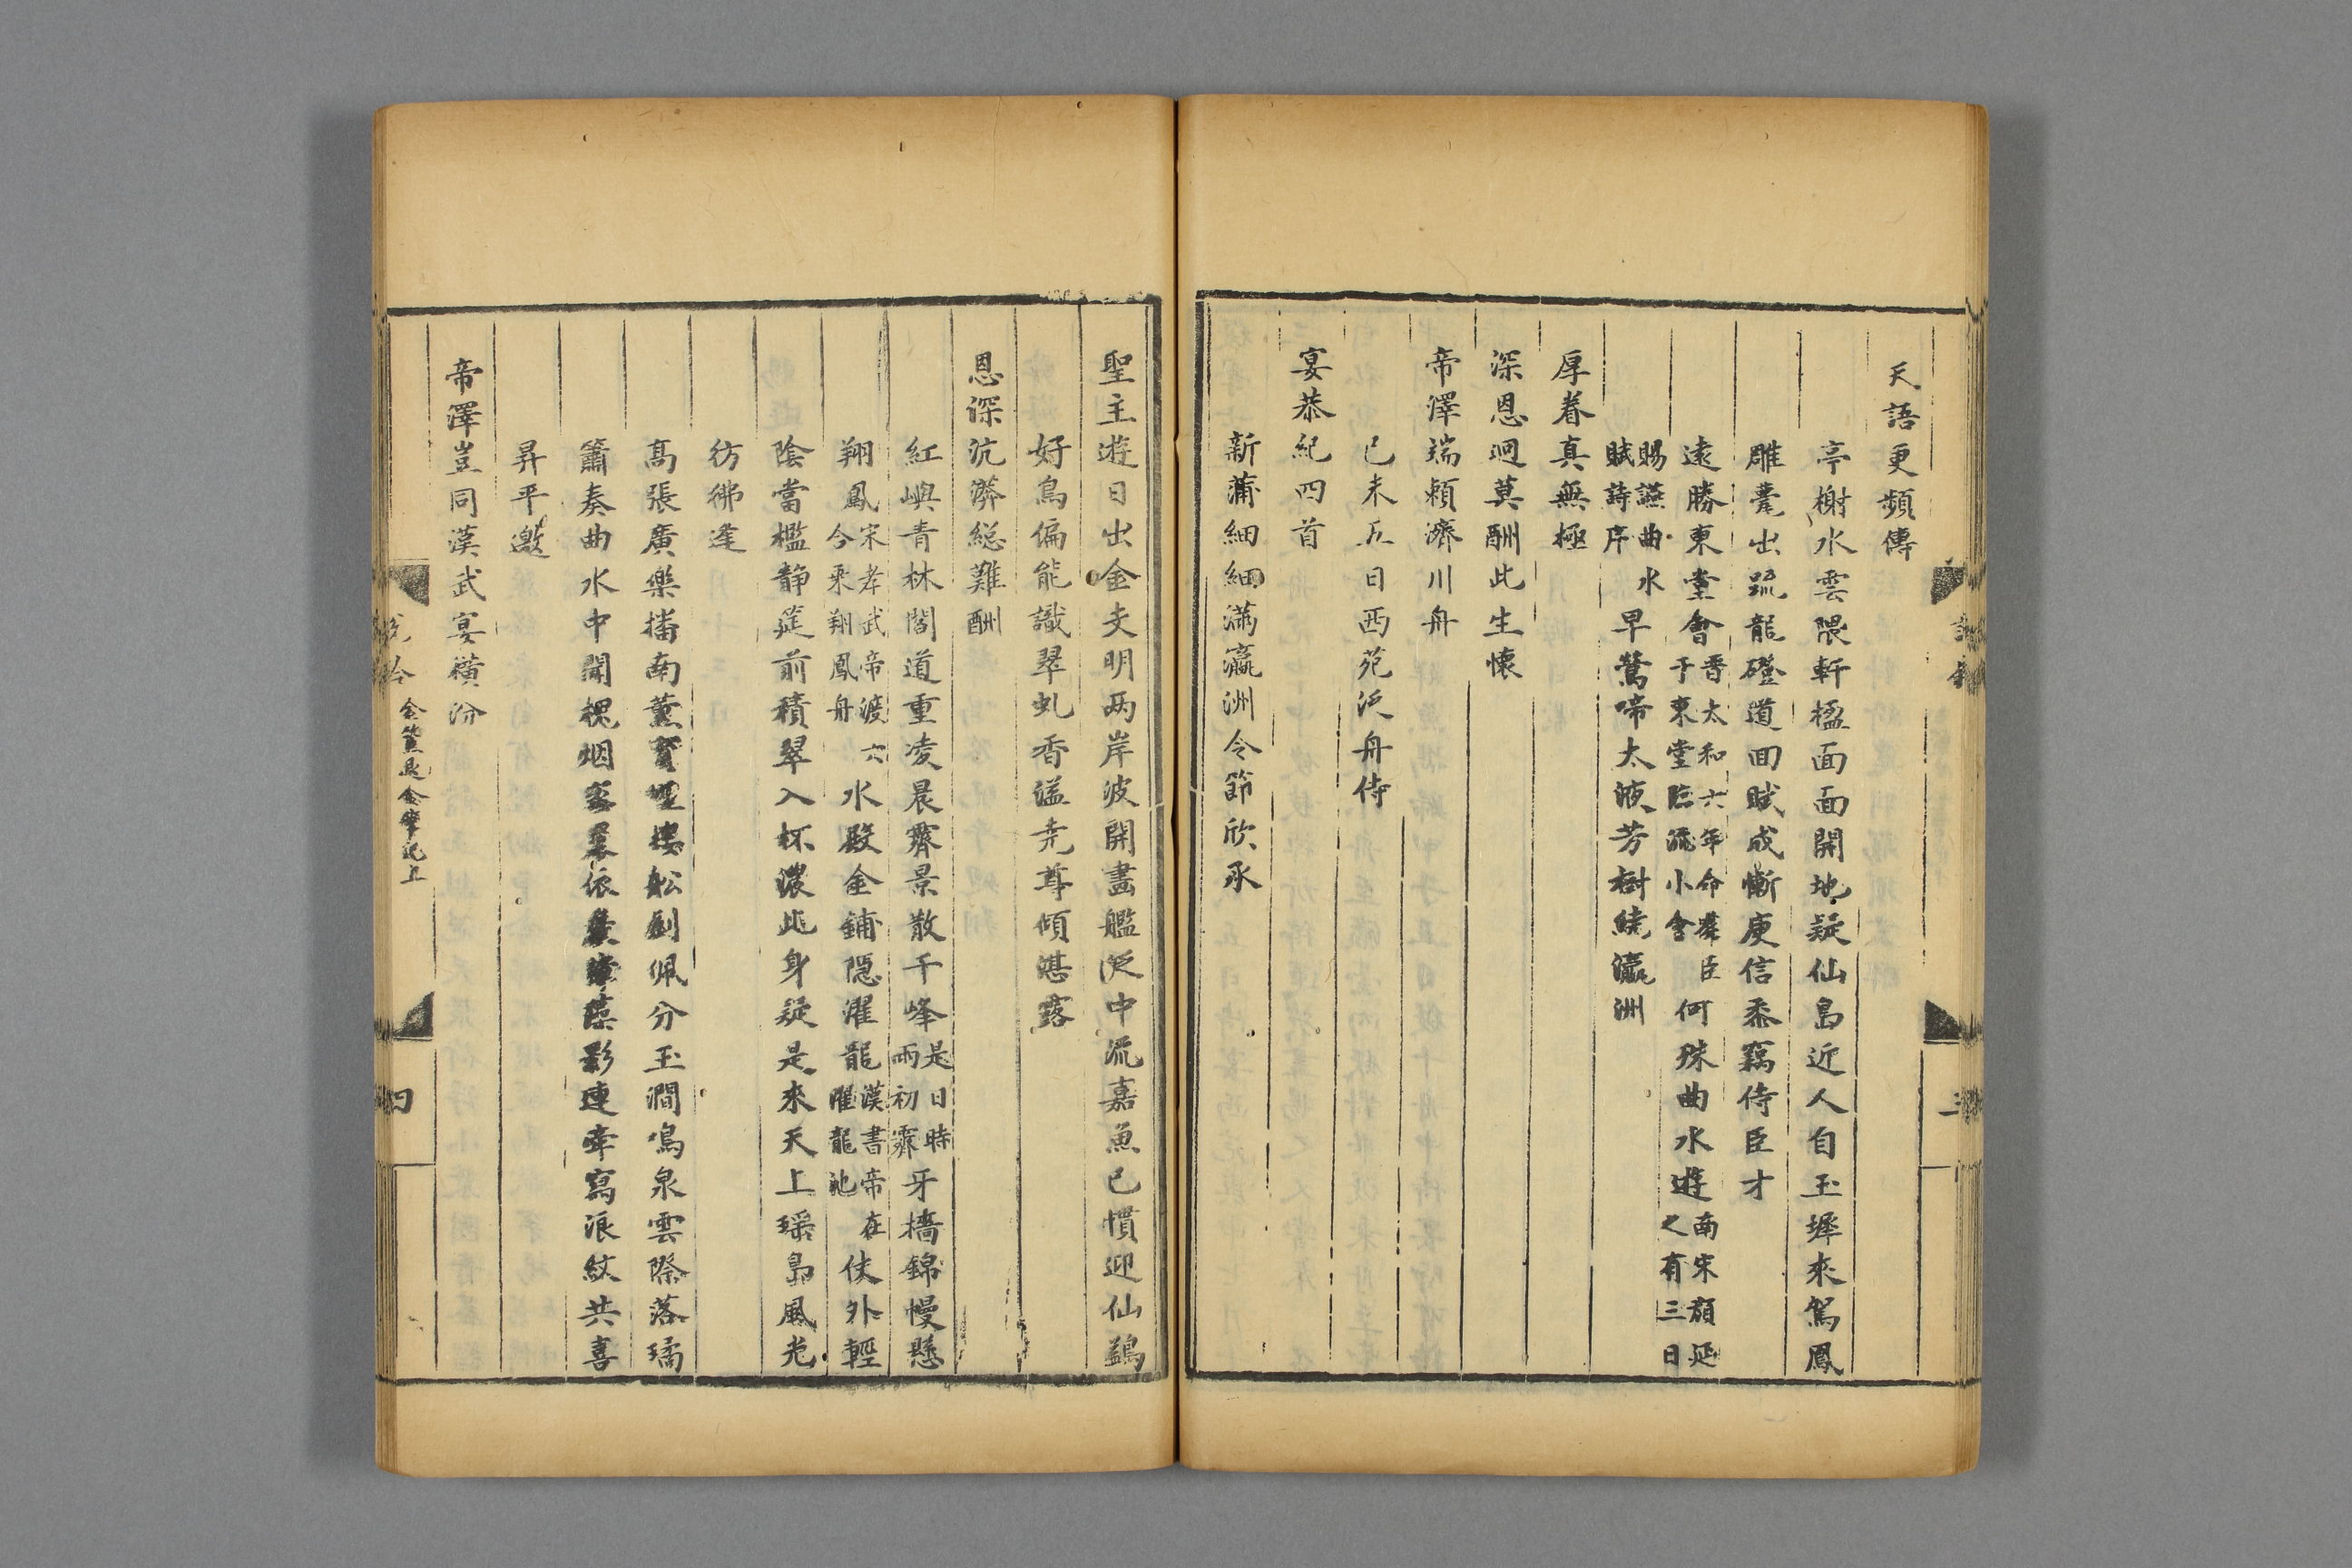 天語更頻傳
亭榭水雲隈軒楹面面開地疑仙島近人自玉墀來駕鳳
雕甍出疏龍磴道回賦成慚庾信忝竊侍臣才
遠勝東堂會晋太和六年命羣臣于東堂臨流小會何殊曲水遊南宋顔延之有三日
賜讌曲水賦詩序早鶯啼太液芳樹繞瀛洲
厚眷真無極
深恩迥莫酬此生懷
帝澤端賴濟川舟
已未五日西苑泛舟侍
宴恭紀四首
新蒲細細滿瀛洲令節欣承
聖主遊日出金支明两岸波開畫艦泛中流嘉魚已慣迎仙鷁
好鳥偏能識翠虬香溢尭尊傾湛露
恩深沆瀣総難酬
紅嶼青林閣道重凌晨霽景散千峰是日時雨初霽牙檣錦幔懸
翔鳳宋孝武帝渡六今乘翔鳳舟水殿金鋪隱濯龍漢書帝在濯龍池仗外輕
陰當檻静筵前積翠入杯濃此身疑是來天上瑶島風光
彷彿逢
高張廣樂播南薰樓舩劍佩分玉澗鳴泉雲際落璚
簫奏曲水中聞槐烟依影連牽寫浪紋共喜
昇平邀
帝澤豈同漢武宴橫汾
四
三